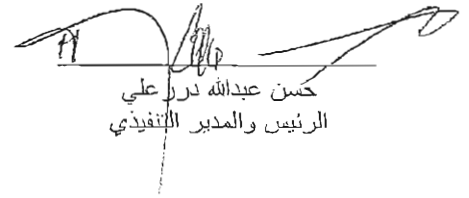 حسن عبدالله درر علي
الرئيس والمدير التنفيذي